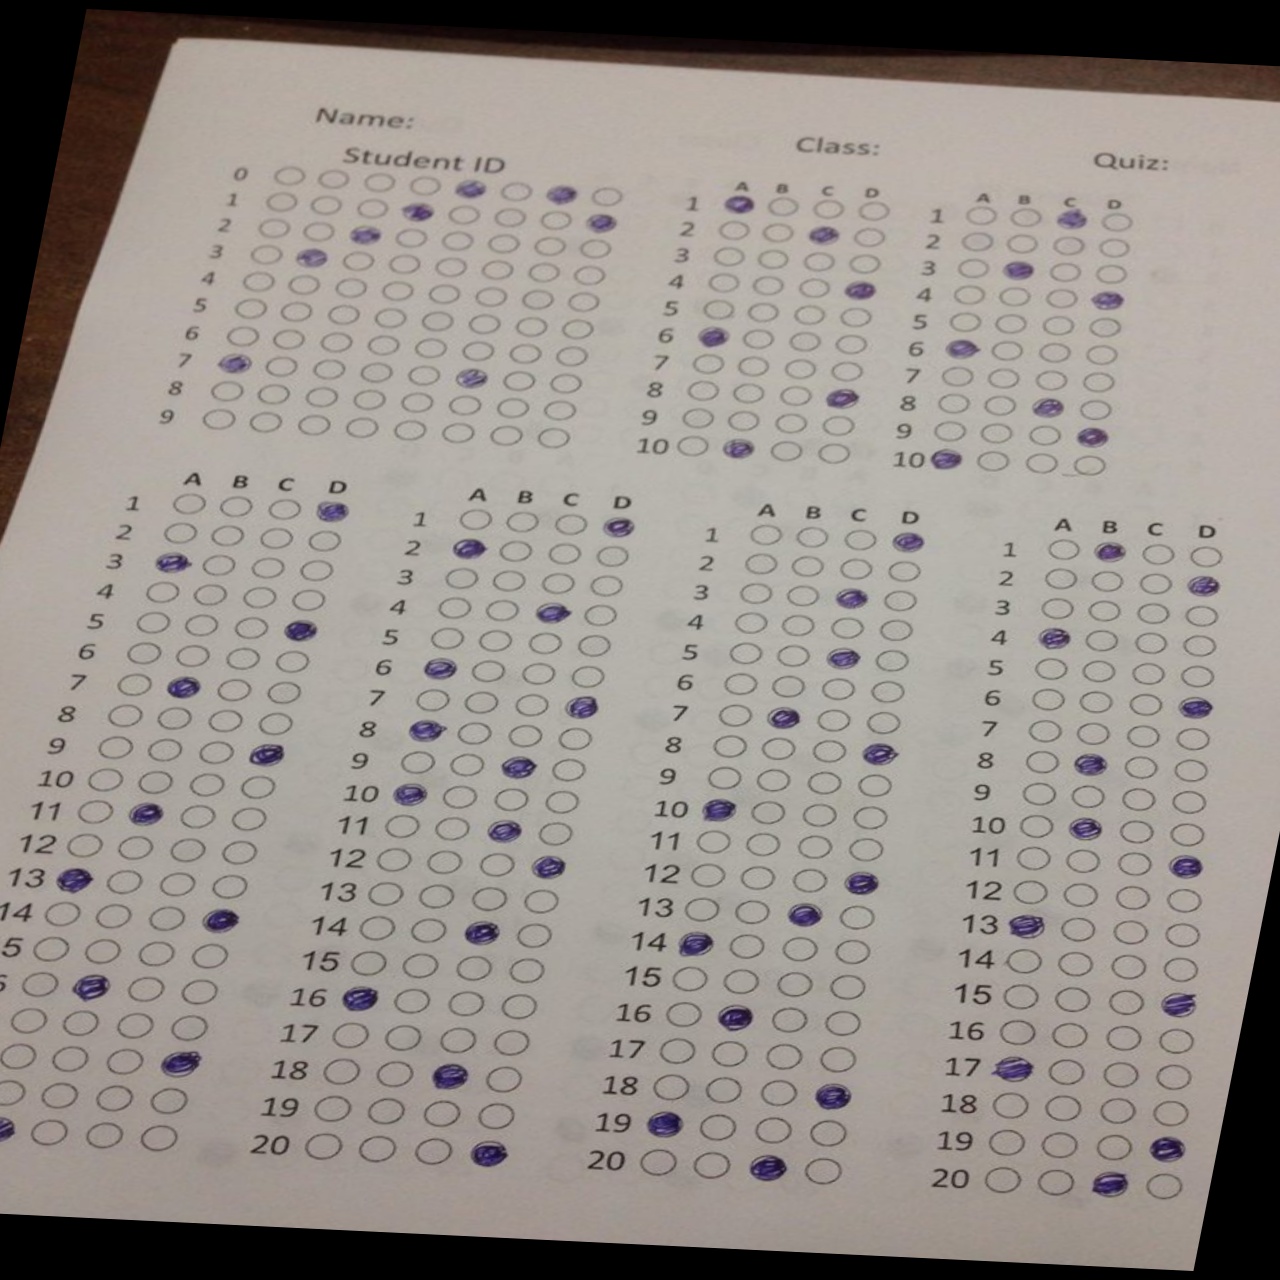 Name:
Class:
Quiz:
Student ID
0
1
2
3
4
5
6
7
8
9
A B C D
1
2
3
4
5
6
7
8
9
10
A B C D
1
2
3
4
5
6
7
8
9
10
A B C D
1
2
3
4
5
6
7
8
9
10
11
12
13
14
5
A B C D
1
2
3
4
5
6
7
8
9
10
11
12
13
14
15
16
17
18
19
20
A B C D
1
2
3
4
5
6
7
8
9
10
11
12
13
14
15
16
17
18
19
20
A B C D
1
2
3
4
5
6
7
8
9
10
11
12
13
14
15
16
17
18
19
20